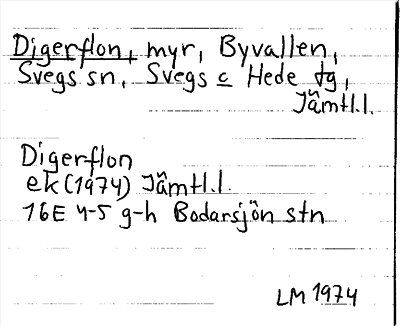 Digerflon, myr, Byvallen,
Svegs sn, Svegs c Hede tg,
Jämtl.l.
Digerflon
ek (1974) Jämtl.l.
16E 4-5 g-h Bodarsjön stn
LM 1974